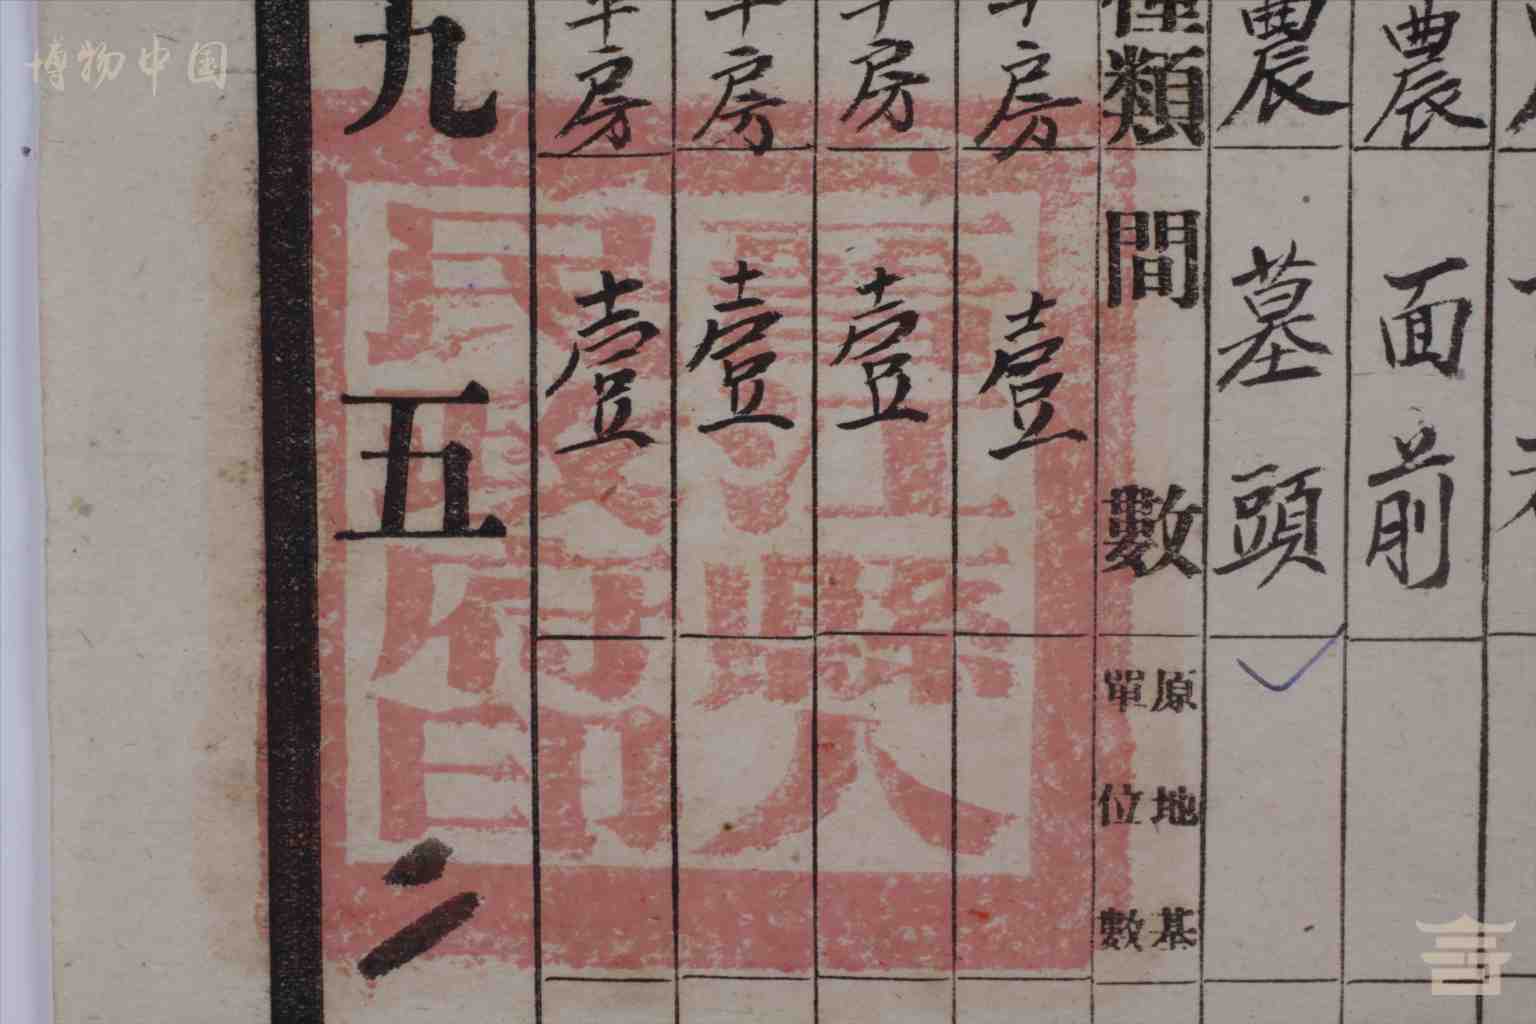 博物中国
農面前
農墓頭
種類間數原地基單位數
平房壹
平房壹
平房壹
平房壹
九五二
江縣人
民政府印